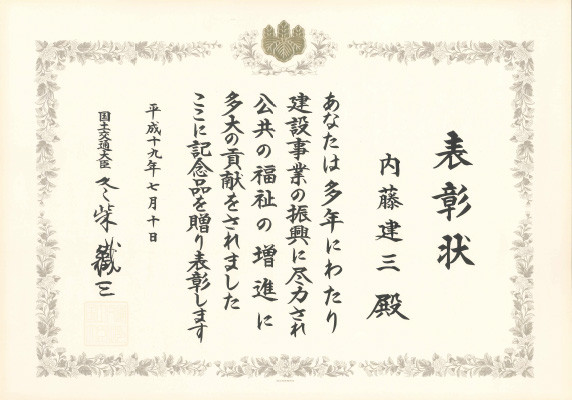 表彰状
内藤建三殿
あなたは多年にわたり
建設事業の振興に尽力され
公共の福祉の増進に
多大の貢献をされました
ここに記念品を贈り表彰します
平成十九年七月十日
国土交通大臣 冬柴鐵三